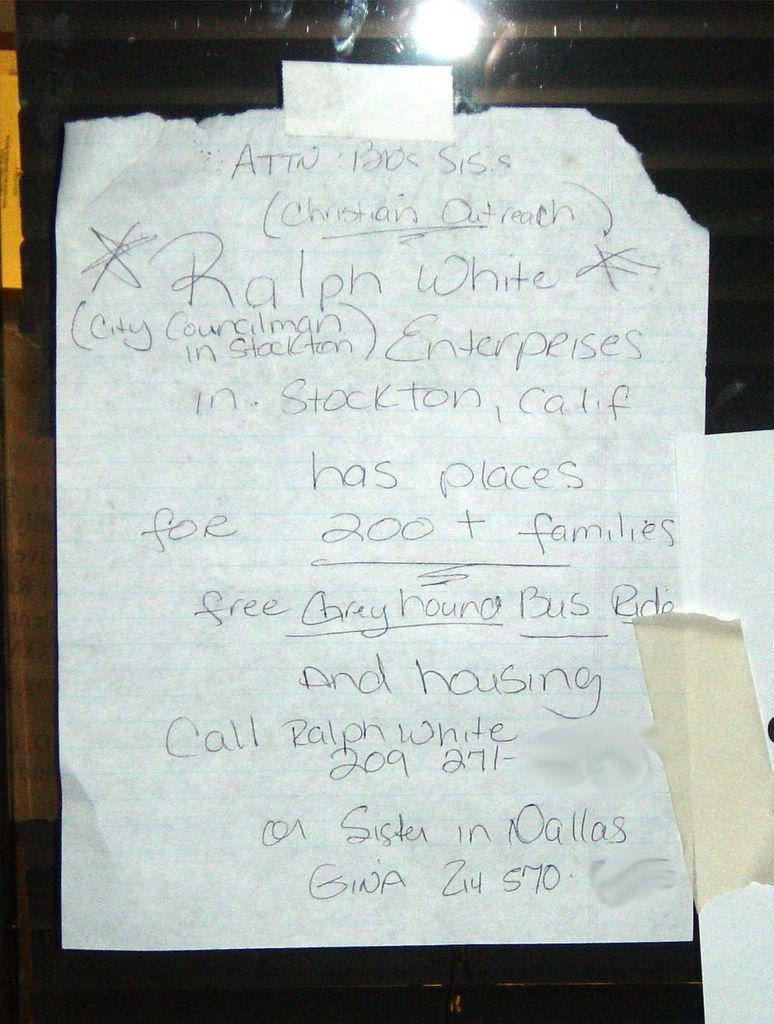 ATTN: BROS SIS.s
(Christian Outreach)
Ralph White
(City Councilman in Stockton) Enterpeises
in. Stockton, Calif
has places
foe 200 + families
free Greyhound Bus Ride
And housing
Call Ralph White
209 271-
or Sister in Dallas
GINA 214 570.